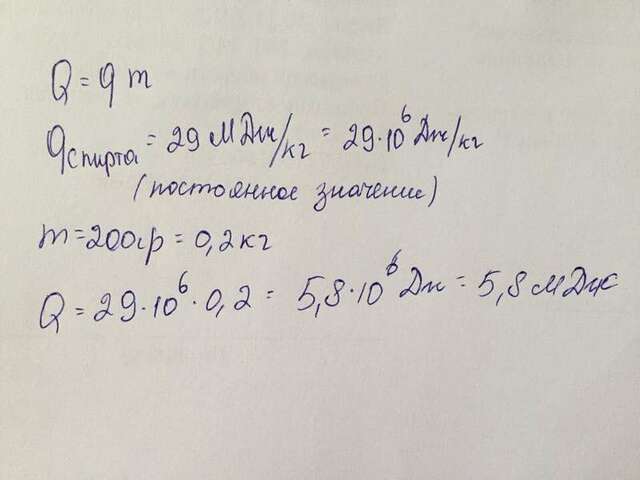 Q = q m
q спирта = 29 МДж/кг = 29·10⁶ Дж/кг
(постоянное значение)
m = 200гр = 0,2 кг
Q = 29·10⁶·0,2 = 5,8·10⁶ Дж = 5,8 мДж